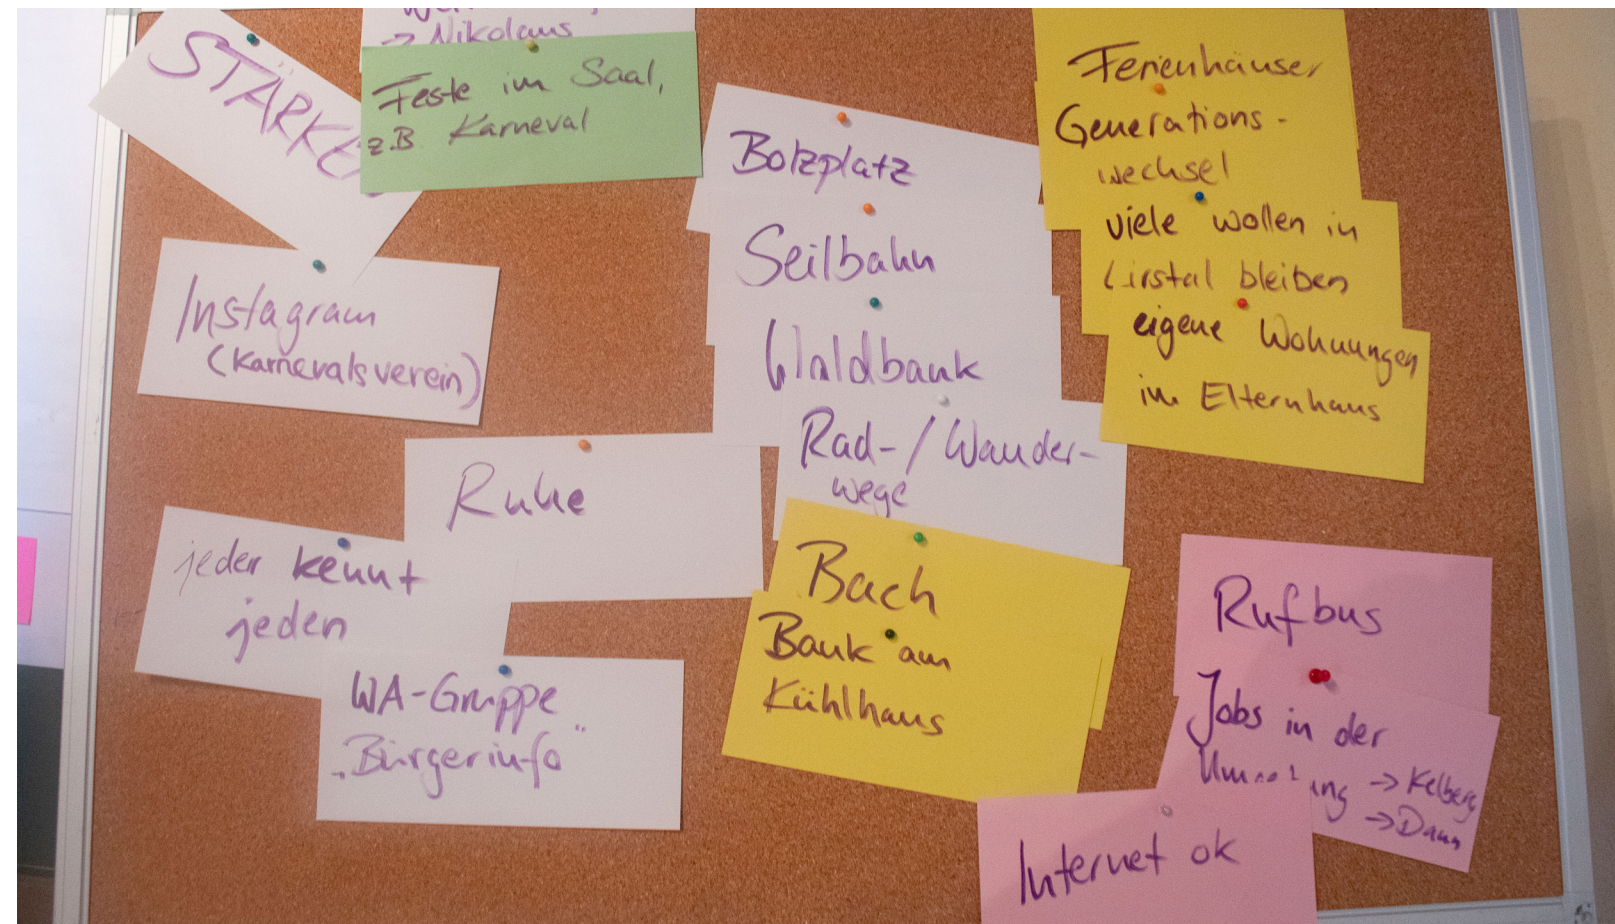 STÄRKE
→ Nikolaus
Feste im Saal,
z.B. Karneval
Instagram
(Karnevalsverein)
Ruhe
jeder kennt
jeden
WA-Gruppe
„Bürgerinfo"
Bolzplatz
Seilbahn
Waldbank
Rad-/Wander-
wege
Bach
Bank am
Kühlhaus
Ferienhäuser
Generations-
wechsel
viele wollen in
Lirstal bleiben
eigene Wohnungen
im Elternhaus
Rufbus
Jobs in der
→ Kelberg
→ Daun
Internet ok